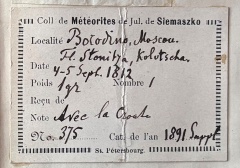 Coll de Météorites de Jul. de Siemaszko
Localité Borodino, Moscou.
Fl. Stonitza, Kolotscha.
Date 4-5 Sept. 1812
Poids 1 gr Nombre 1
Reçu de
Note Avec la Croute
No. 375 Cat. de l'an 1891 Suppt.
St. Pétersbourg.